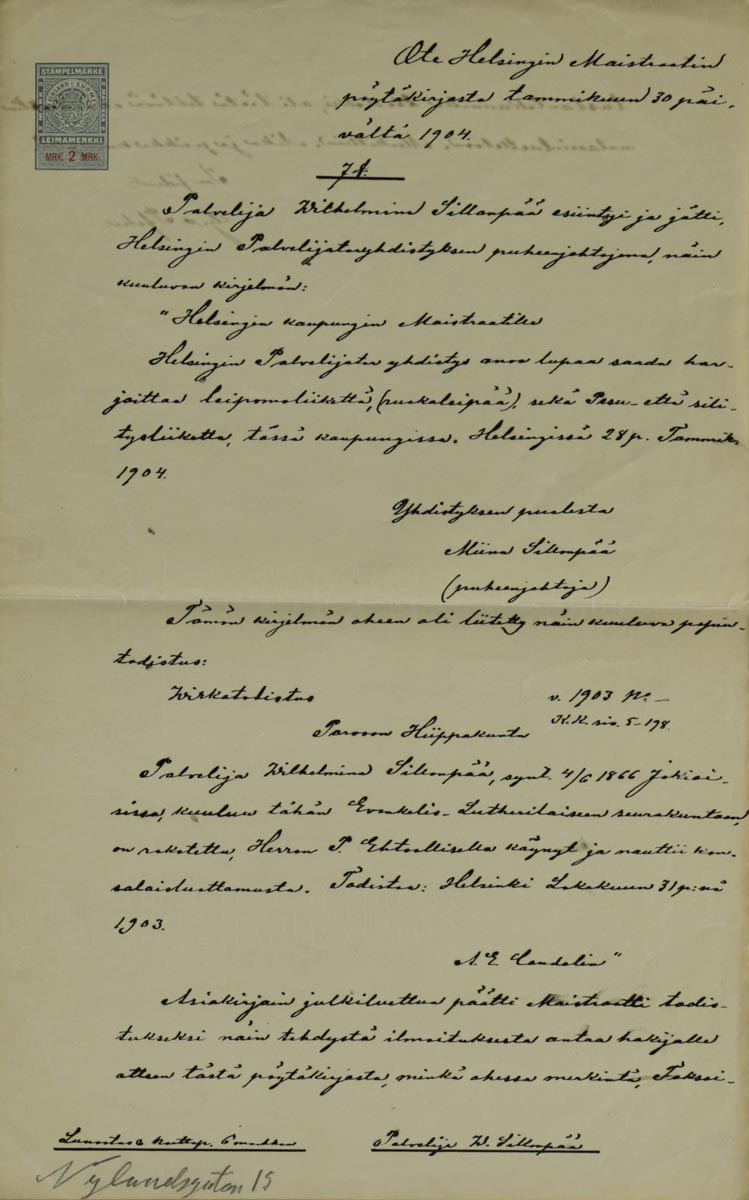 STÄMPELMÄRKE
FINLAND SUOMI
LEIMAMERKKI
MRK. 2 MRK.
Ote Helsingin Maistraatin
pöytäkirjasta tammikuun 30 päi-
vältä 1904.
Palvelija Wilhelmina Sillanpää esiintyi ja jätti,
Helsingin Palvelijataryhdistyksen puheenjohtajana, näin
kuuluvan kirjelmän:
"Helsingin kaupungin Maistraatille
Helsingin Palvelijatar yhdistys anoo lupaa saada har-
joittaa leipomoliikettä, (ruokaleipää), sekä Pesu- että sili-
tysliikettä, tässä kaupungissa. Helsingissä 28 p. Tammik.
1904.
Yhdistyksen puolesta
Miina Sillanpää
(puheenjohtaja)
Tämän kirjelmän oheen oli liitetty näin kuuluva papin-
todistus:
Wirkatodistus v. 1903 No —
K.K. siv. 5-198.
Porvoon Hiippakunta
Palvelija Wilhelmina Sillanpää, synt. 4/6 1866 Jokioi-
sissa, kuuluu tähän Evankelis-Lutherilaiseen seurakuntaan,
on rokotettu, Herran P. Ehtoollisella käynyt ja nauttii kan-
salaisluottamusta. Todistaa: Helsinki Lokakuun 31 p:nä
1903.
A. E. Candelin"
Asiakirjain julkiluettua päätti Maistraatti todis-
tukseksi näin tehdystä ilmoituksesta antaa hakijalle
otteen tästä pöytäkirjasta, minkä ohessa merkintä, Taksoi-
Lunastus 6 markkaa Palvelija W. Sillanpää
Nylandsgatan 15